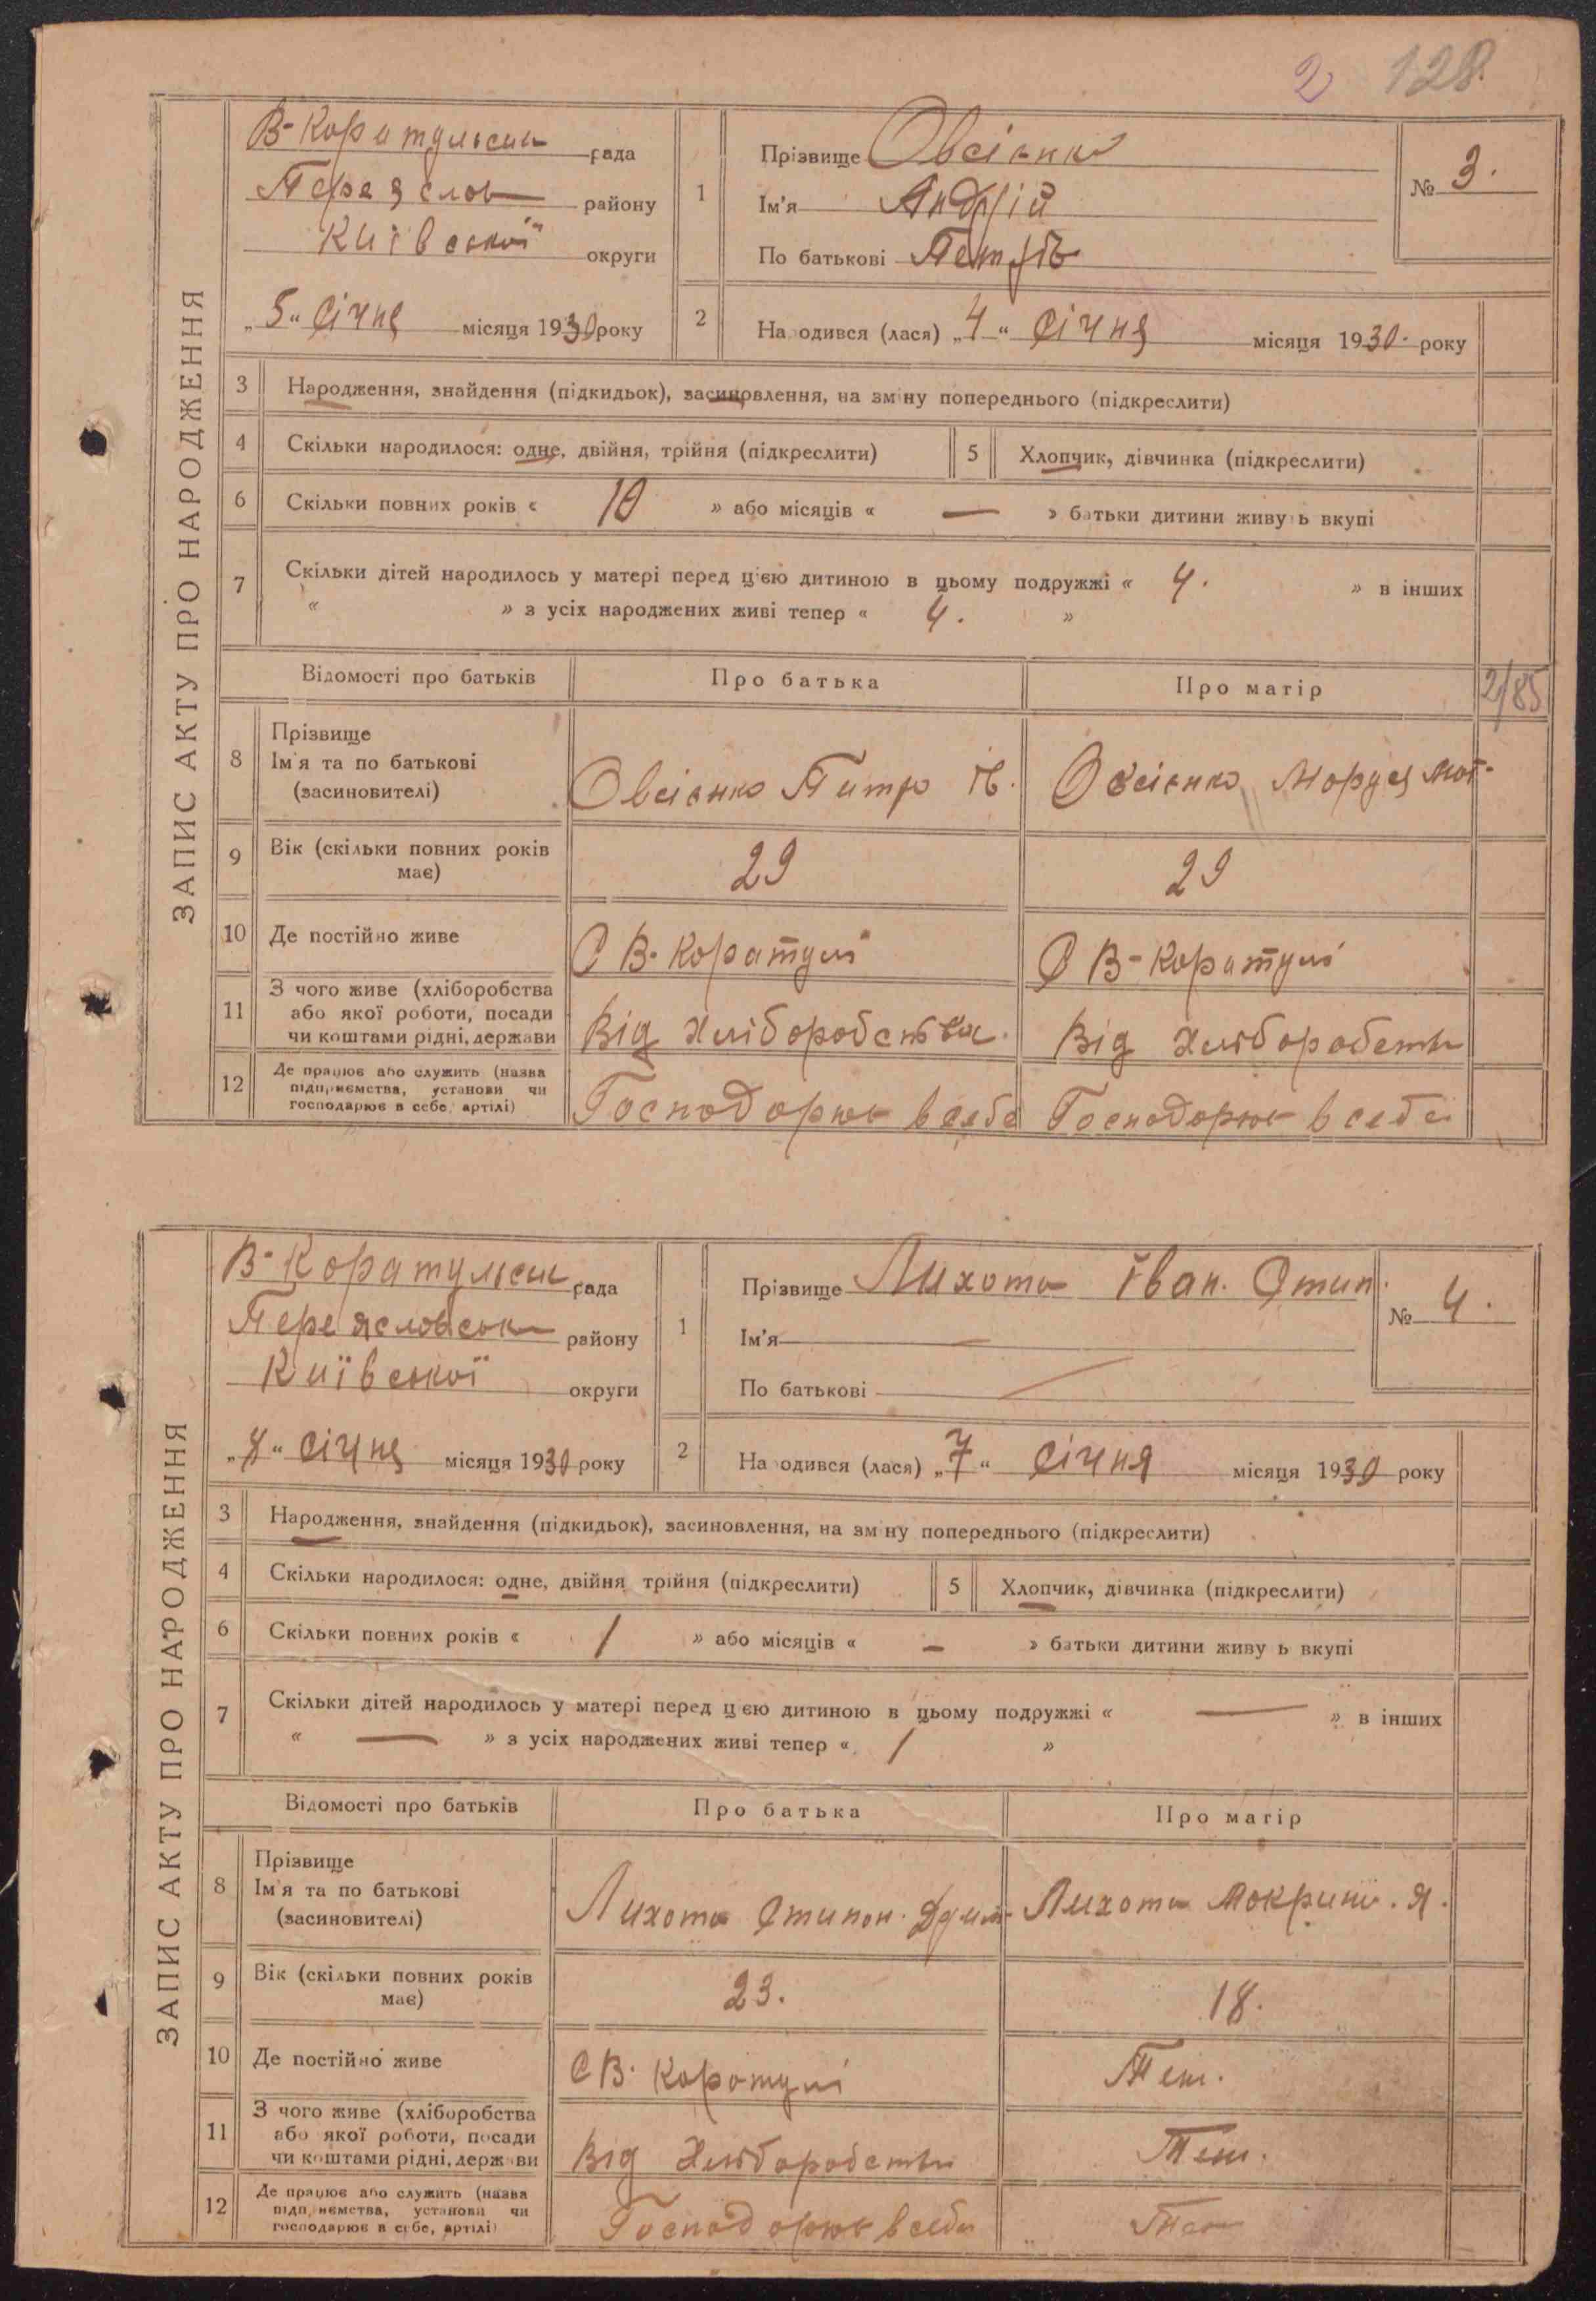 2 128
ЗАПИС АКТУ ПРО НАРОДЖЕННЯ
В-Каратульськ рада
Переяслов району
Київської округи
„5“ Січня місяця 1930 року
1
Прізвище Овсієнко
Ім'я Андрій
По батькові Петрів
№ 3.
2 На одився (лася) „4“ Січня місяця 1930. року
3 Народження, знайдення (підкидьок), засиновлення, на зміну попереднього (підкреслити)
4 Скільки народилося: одне, двійня, трійня (підкреслити) 5 Хлопчик, дівчинка (підкреслити)
6 Скільки повних років « 10 » або місяців « — » батьки дитини живу ь вкупі
7 Скільки дітей народилось у матері перед цією дитиною в цьому подружжі « 4. » в інших
« » з усіх народжених живі тепер « 4. »
Відомості про батьків Про батька Про матір 2/85
8 Прізвище
Ім'я та по батькові
(засиновителі)
Овсієнко Питро Ів. Овсієнко Моруся Мот-
9 Вік (скільки повних років
має)
29 29
10 Де постійно живе С В-Коратулі С В-Коратулі
11 З чого живе (хліборобства
або якої роботи, посади
чи коштами рідні, держави
Від Хліборобства. Від Хліборобств
12 Де працює або служить (назва
підприємства, установи чи
господарює в себе, артілі)
Господорює в себе Господорює в себе
ЗАПИС АКТУ ПРО НАРОДЖЕННЯ
В-Коратульськ рада
Переясловськ району
Київської округи
„7“ Січня місяця 1930 року
1
Прізвище Лихота Іван. Стип.
Ім'я —
По батькові —
№ 4.
2 На одився (лася) „7“ Січня місяця 1930 року
3 Народження, знайдення (підкидьок), засиновлення, на зм ну попереднього (підкреслити)
4 Скільки народилося: одне, двійня трійня (підкреслити) 5 Хлопчик, дівчинка (підкреслити)
6 Скільки повних років « 1 » або місяців « — » батьки дитини живу ь вкупі
7 Скільки дітей народилось у матері перед цією дитиною в цьому подружжі « — » в інших
« — » з усіх народжених живі тепер « 1 »
Відомості про батьків Про батька Про матір
8 Прізвище
Ім'я та по батькові
(засиновителі)
Лихота Стипон. Лихота Мокрини. Я.
9 Вік (скільки повних років
має)
23. 18.
10 Де постійно живе С В. Коротулі Теж.
11 З чого живе (хліборобства
або якої роботи, посади
чи коштами рідні, держ ви
Від Хліборобств Теж.
12 Де працює або служить (назва
підп иємства, установи чи
господарює в себе, артілі)
Господорює в себе Теж